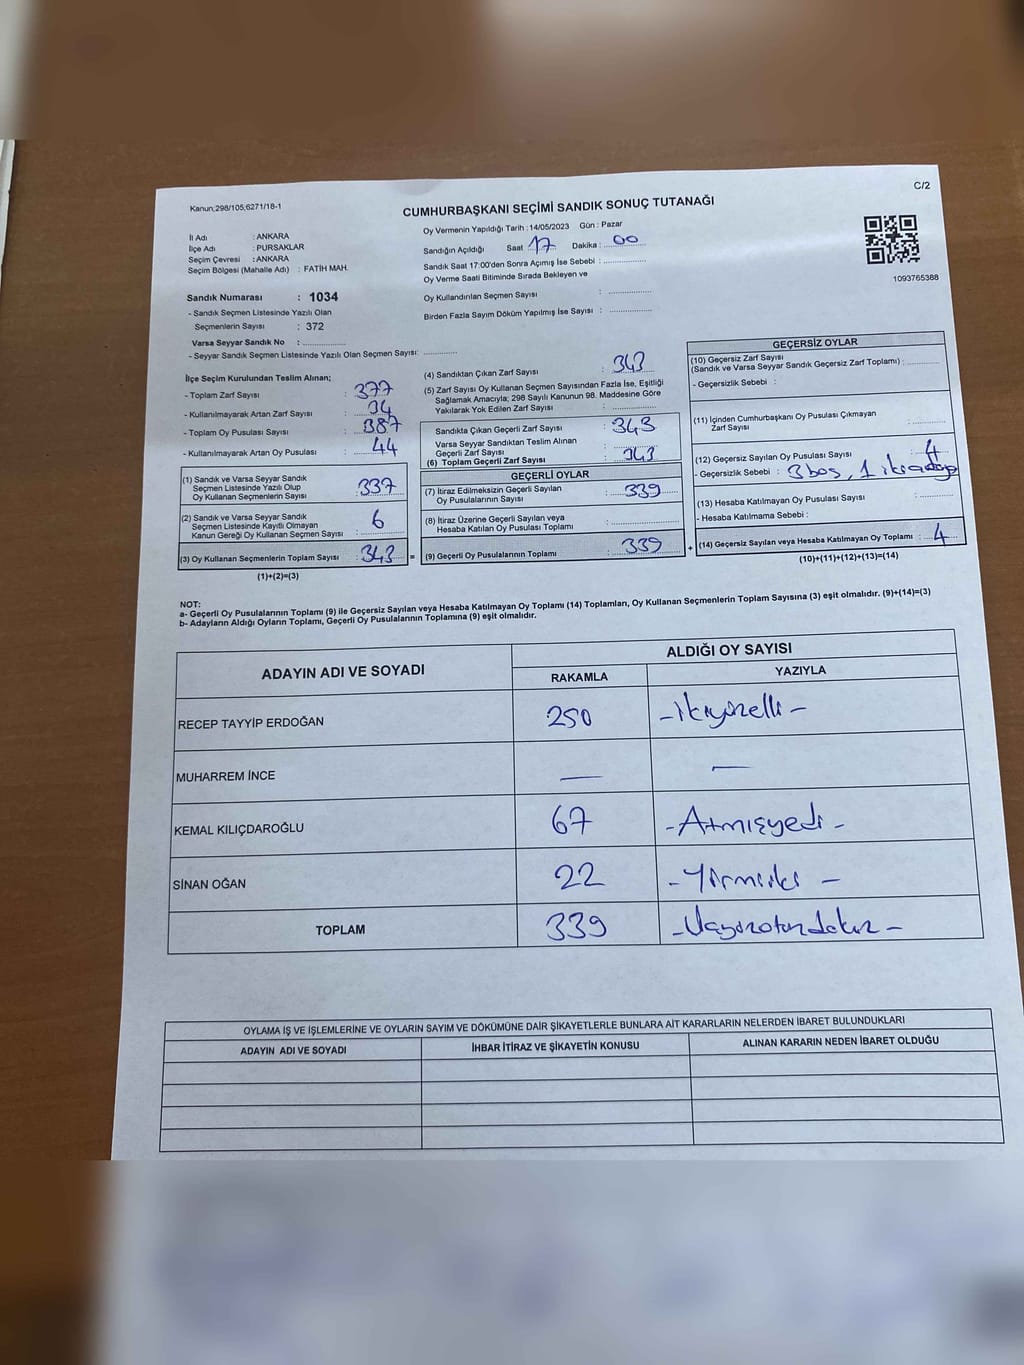 Kanun;298/105;6271/18-1
C/2
CUMHURBAŞKANI SEÇİMİ SANDIK SONUÇ TUTANAĞI
İl Adı : ANKARA
İlçe Adı : PURSAKLAR
Seçim Çevresi : ANKARA
Seçim Bölgesi (Mahalle Adı) : FATİH MAH.
Sandık Numarası : 1034
- Sandık Seçmen Listesinde Yazılı Olan
Seçmenlerin Sayısı : 372
Varsa Seyyar Sandık No :
- Seyyar Sandık Seçmen Listesinde Yazılı Olan Seçmen Sayısı:
Oy Vermenin Yapıldığı Tarih :14/05/2023 Gün : Pazar
Sandığın Açıldığı Saat : 17 Dakika : 00
Sandık Saat 17:00'den Sonra Açımış İse Sebebi :
Oy Verme Saati Bitiminde Sırada Bekleyen ve
Oy Kullandırılan Seçmen Sayısı :
Birden Fazla Sayım Döküm Yapılmış İse Sayısı :
1093765388
İlçe Seçim Kurulundan Teslim Alınan;
- Toplam Zarf Sayısı : 377
- Kullanılmayarak Artan Zarf Sayısı : 34
- Toplam Oy Pusulası Sayısı : 387
- Kullanılmayarak Artan Oy Pusulası : 44
(1) Sandık ve Varsa Seyyar Sandık
Seçmen Listesinde Yazılı Olup
Oy Kullanan Seçmenlerin Sayısı : 337
(2) Sandık ve Varsa Seyyar Sandık
Seçmen Listesinde Kayıtlı Olmayan
Kanun Gereği Oy Kullanan Seçmen Sayısı : 6
(3) Oy Kullanan Seçmenlerin Toplam Sayısı : 343 =
(1)+(2)=(3)
(4) Sandıktan Çıkan Zarf Sayısı : 343
(5) Zarf Sayısı Oy Kullanan Seçmen Sayısından Fazla İse, Eşitliği
Sağlamak Amacıyla; 298 Sayılı Kanunun 98. Maddesine Göre
Yakılarak Yok Edilen Zarf Sayısı :
Sandıkta Çıkan Geçerli Zarf Sayısı : 343
Varsa Seyyar Sandıktan Teslim Alınan
Geçerli Zarf Sayısı :
(6) Toplam Geçerli Zarf Sayısı : 343
GEÇERLİ OYLAR
(7) İtiraz Edilmeksizin Geçerli Sayılan
Oy Pusulalarının Sayısı : 339
(8) İtiraz Üzerine Geçerli Sayılan veya
Hesaba Katılan Oy Pusulası Toplamı :
(9) Geçerli Oy Pusulalarının Toplamı : 339 +
GEÇERSİZ OYLAR
(10) Geçersiz Zarf Sayısı
(Sandık ve Varsa Seyyar Sandık Geçersiz Zarf Toplamı) :
- Geçersizlik Sebebi :
(11) İçinden Cumhurbaşkanı Oy Pusulası Çıkmayan
Zarf Sayısı :
(12) Geçersiz Sayılan Oy Pusulası Sayısı : 4
- Geçersizlik Sebebi : 3 boş, 1 iki
(13) Hesaba Katılmayan Oy Pusulası Sayısı :
- Hesaba Katılmama Sebebi :
(14) Geçersiz Sayılan veya Hesaba Katılmayan Oy Toplamı : 4
(10)+(11)+(12)+(13)=(14)
NOT:
a- Geçerli Oy Pusulalarının Toplamı (9) ile Geçersiz Sayılan veya Hesaba Katılmayan Oy Toplamı (14) Toplamları, Oy Kullanan Seçmenlerin Toplam Sayısına (3) eşit olmalıdır. (9)+(14)=(3)
b- Adayların Aldığı Oyların Toplamı, Geçerli Oy Pusulalarının Toplamına (9) eşit olmalıdır.
ADAYIN ADI VE SOYADI
ALDIĞI OY SAYISI
RAKAMLA YAZIYLA
RECEP TAYYİP ERDOĞAN 250 - ikiyüzelli -
MUHARREM İNCE — —
KEMAL KILIÇDAROĞLU 67 - Atmışyedi -
SİNAN OĞAN 22 - Yirmiiki -
TOPLAM 339 - Üçyüzotuzdokuz -
OYLAMA İŞ VE İŞLEMLERİNE VE OYLARIN SAYIM VE DÖKÜMÜNE DAİR ŞİKAYETLERLE BUNLARA AİT KARARLARIN NELERDEN İBARET BULUNDUKLARI
ADAYIN ADI VE SOYADI İHBAR İTİRAZ VE ŞİKAYETİN KONUSU ALINAN KARARIN NEDEN İBARET OLDUĞU